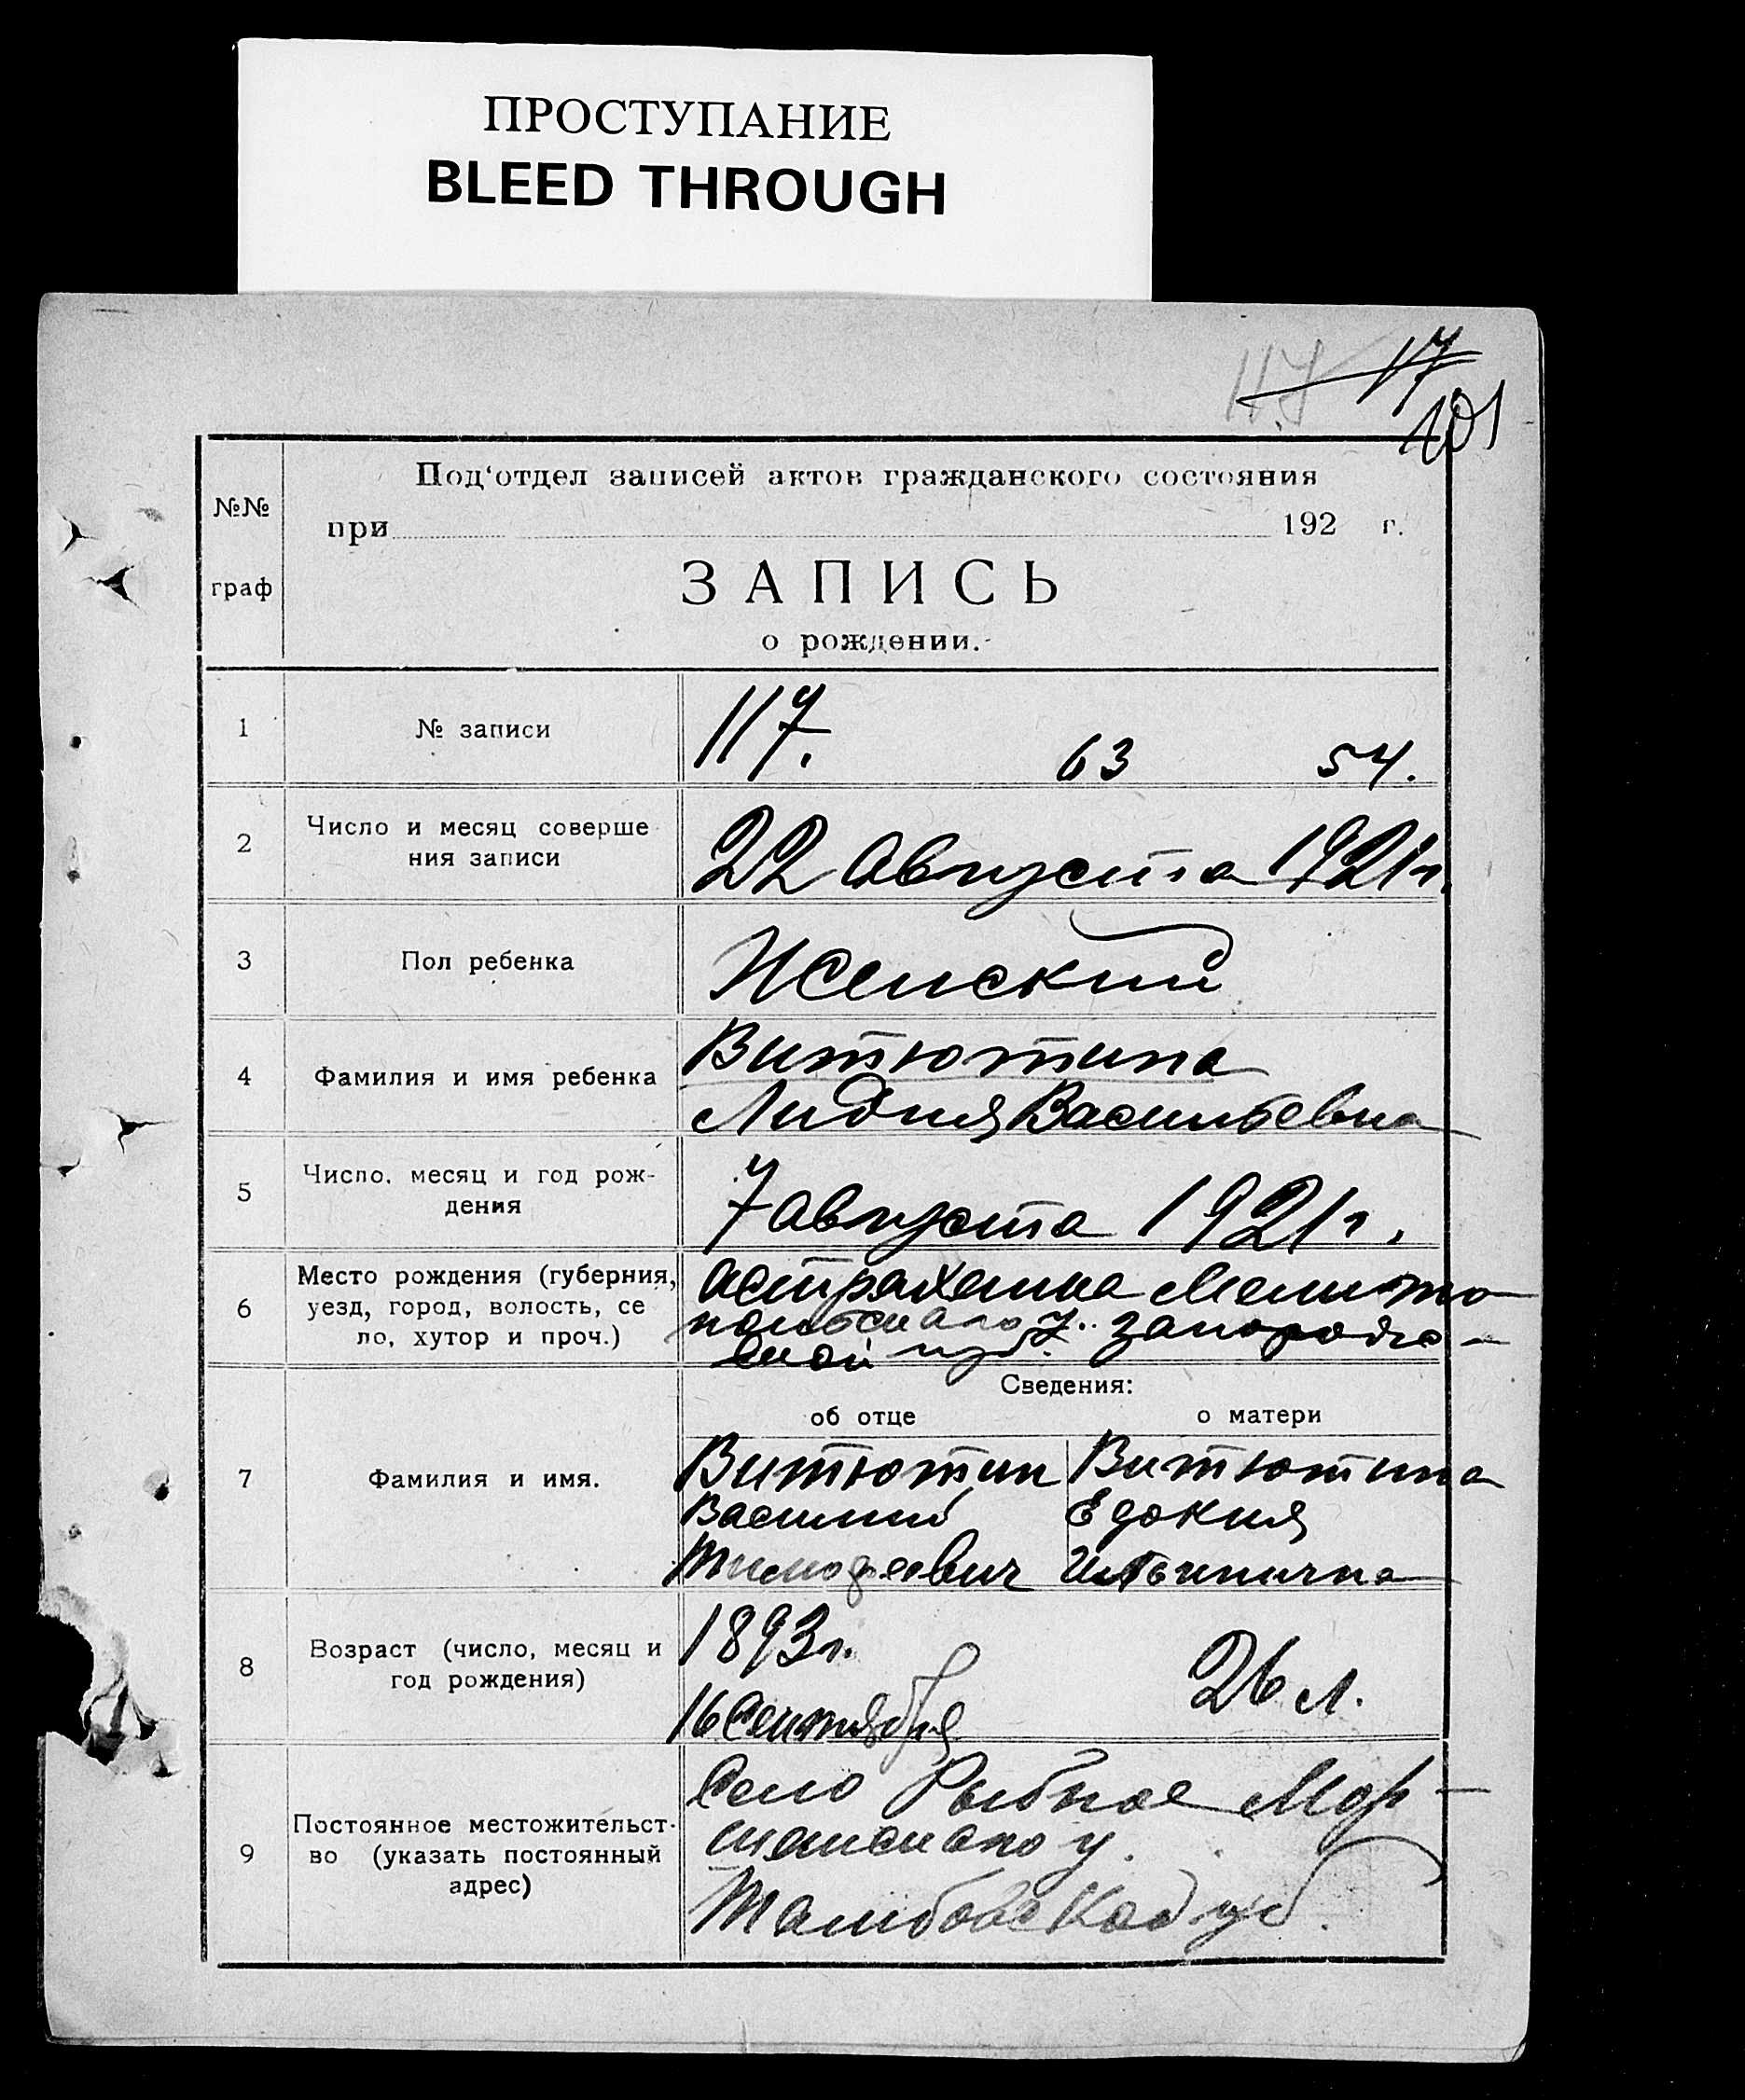 ПРОСТУПАНИЕ
BLEED THROUGH
117 17
101
№№ граф
Под‘отдел записей актов гражданского состояния
при 192 г.
ЗАПИСЬ
о рождении.
1 № записи 117. 63 54.
2 Число и месяц соверше
ния записи
22 Августа 1921 г.
3 Пол ребенка Женский
4 Фамилия и имя ребенка Витютина
Лидия Васильевна
5 Число, месяц и год рож-
дения
7 августа 1921 г.
6 Место рождения (губерния,
уезд, город, волость, се
ло, хутор и проч.)
Астраханка Мелито
польскаго у. Запорож-
ской губ.
Сведения:
об отце о матери
7 Фамилия и имя.
Витютин Витютина
Василий Едокия
Тимофеевич Ильинична
8 Возраст (число, месяц и
год рождения)
1893 г. 26 л.
16 Сентября
9 Постоянное местожительст-
во (указать постоянный
адрес)
Село Рыбное Мор-
шанскаго у.
Тамбовской губ.